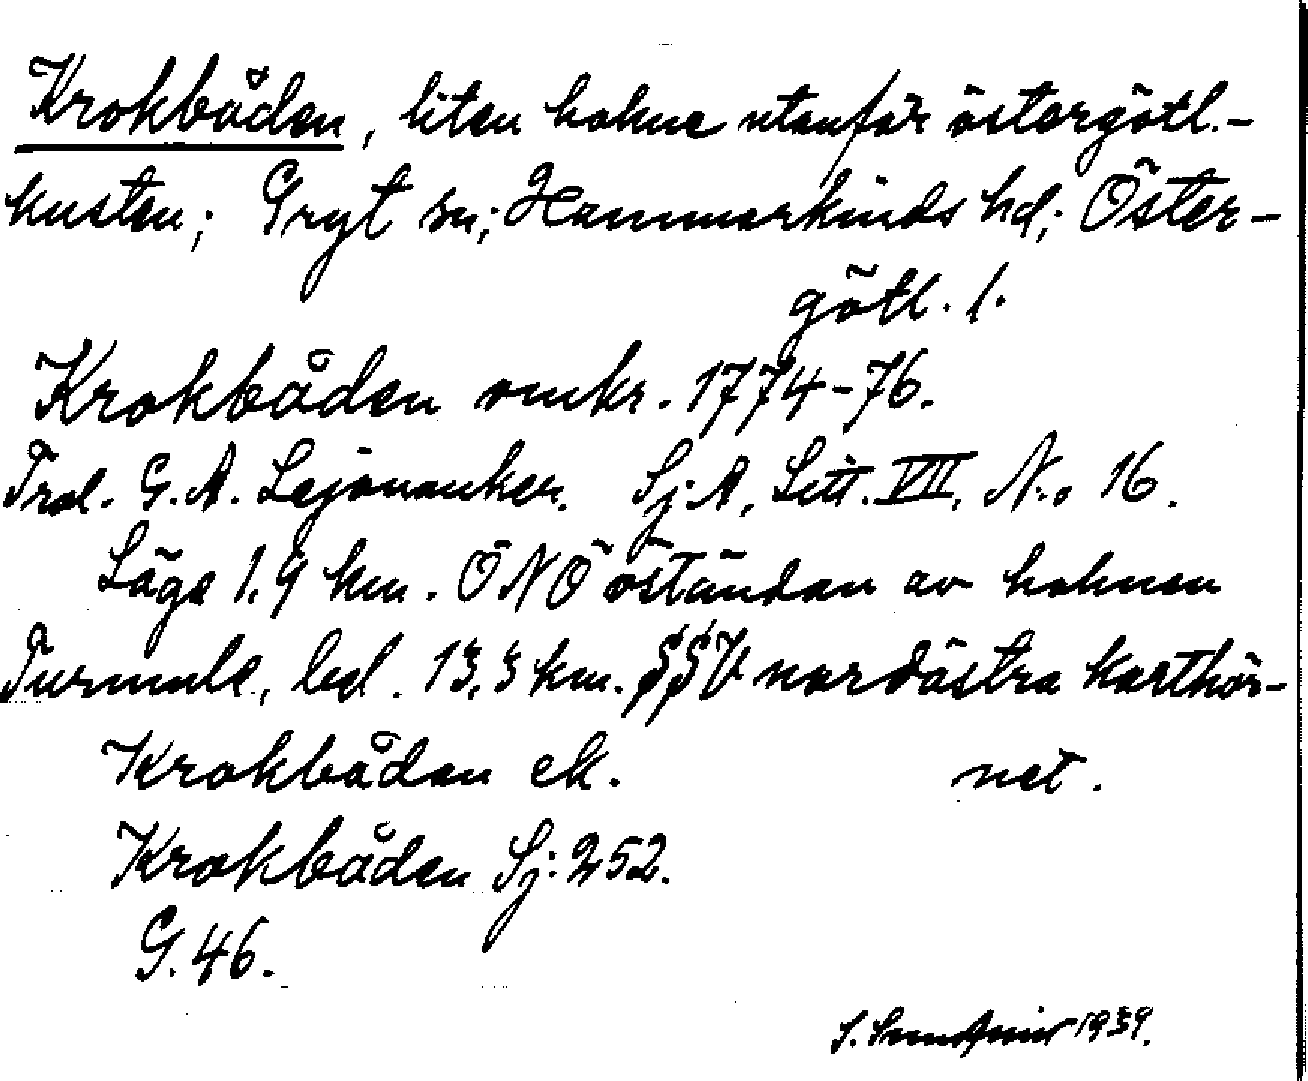 Krokbåden, liten holme utanför östergötl.-
kusten; Gryt sn; Hammarkinds hd; Öster-
götl. l.
Krokbåden omkr. 1774-76.
Trol. G. A. Lejonanker. Sj:A, Litt. VII, N:o 16.
Läge 1,9 km. ÖNÖ öständan av holmen
Turmule, bel. 13,3 km. SSV nordöstra karthör-
net.
Krokbåden ek.
Krokbåden Sj: 252.
G. 46.
1939.